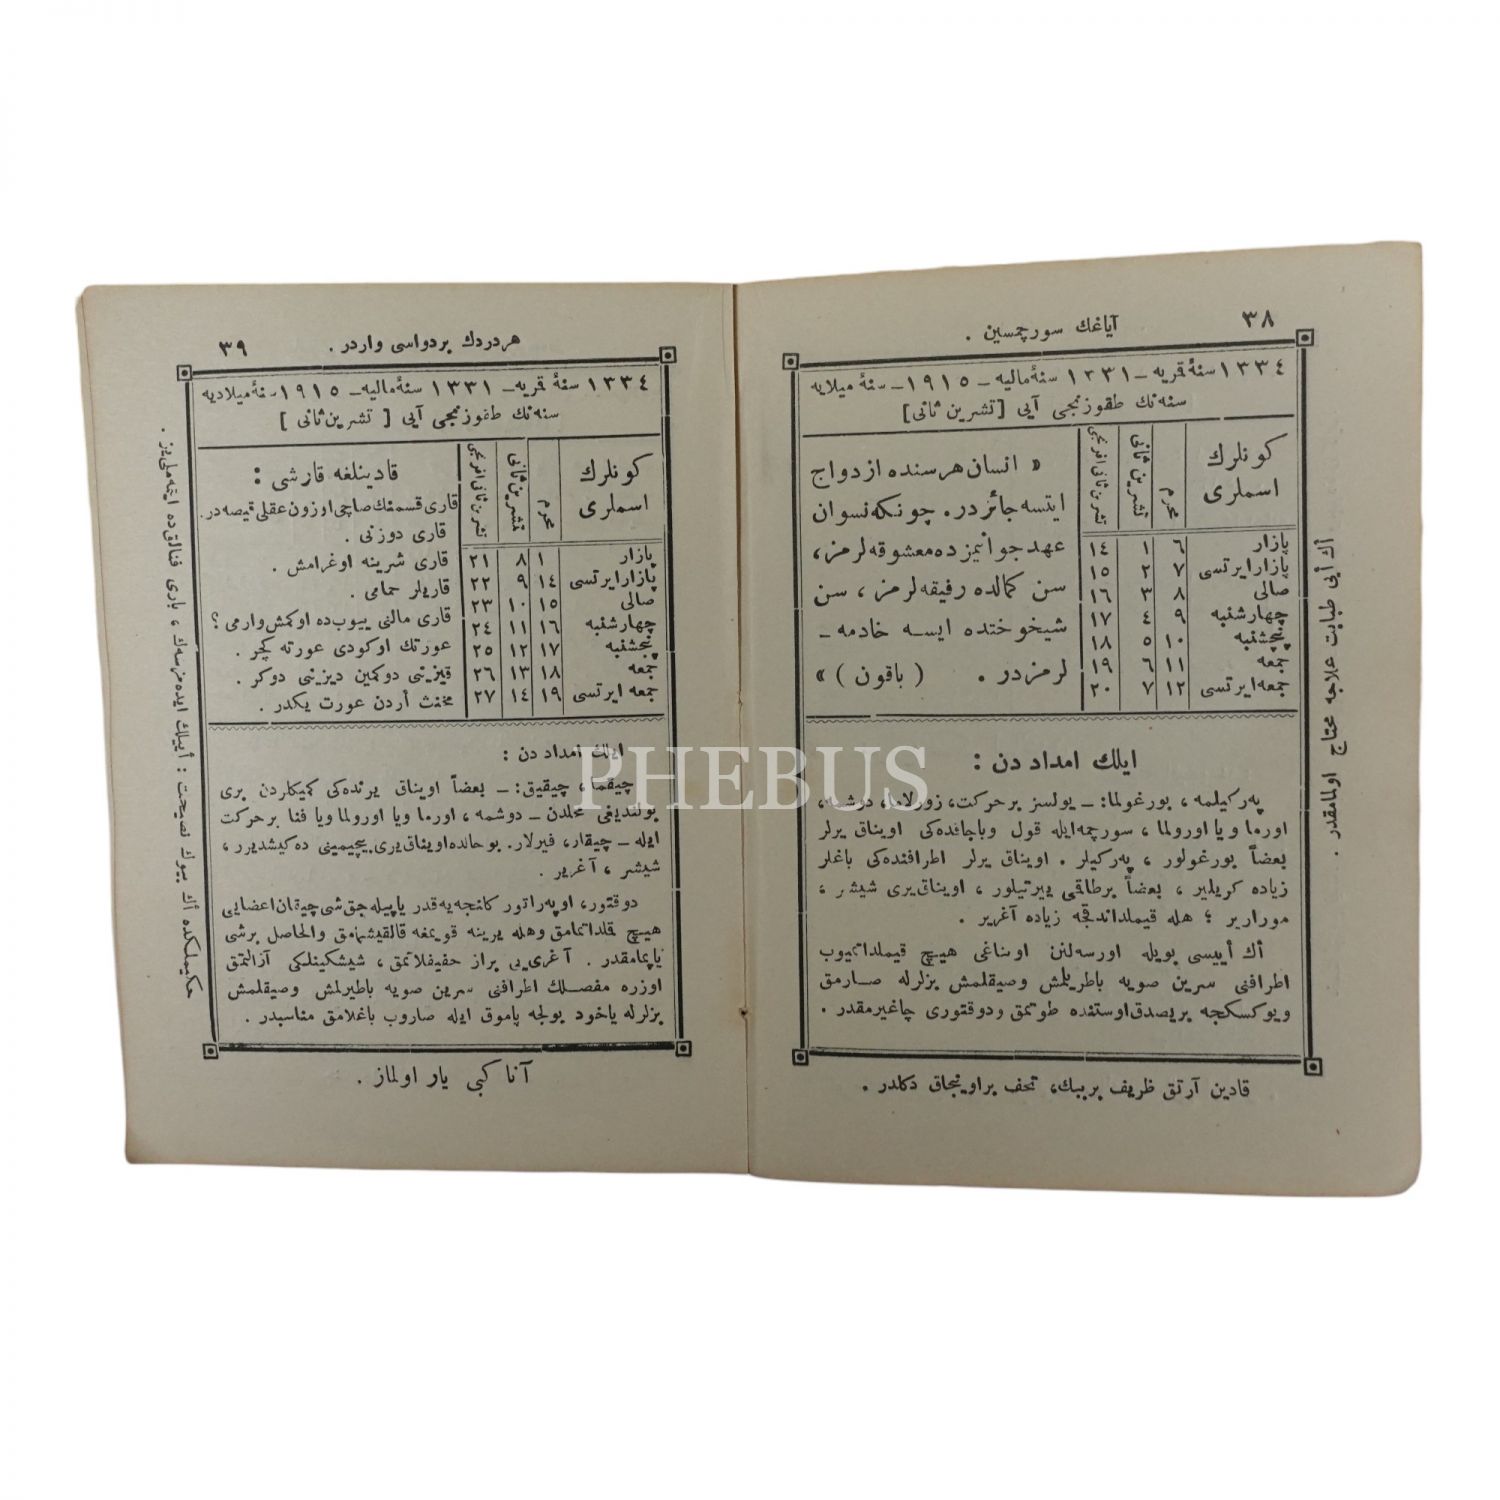 ٣٨
آیاغك سورچمسین .
١٣٣٤ سنهٔ قمریه ـ ١٣٣١ سنهٔ مالیه ـ ١٩١٥ ـ سنهٔ میلادیه
سنه‌نك طقوزنجی آیی [ تشرین ثانی ]
كونلرك اسملری
محرم
تشرین ثانی
تشرین ثانی افرنجی
پازار ٦ ١ ١٤
پازار ایرتسی ٧ ٢ ١٥
صالی ٨ ٣ ١٦
چهارشنبه ٩ ٤ ١٧
پنجشنبه ١٠ ٥ ١٨
جمعه ١١ ٦ ١٩
جمعه ایرتسی ١٢ ٧ ٢٠
« انسان هر سنده ازدواج
ایتسه جائزدر. چونكه نسوان
عهد جوانیمزده معشوقه لرمز،
سن كمالده رفیقه لرمز ، سن
شیخوختده ایسه خادمه ـ
لرمزدر . ( باقون ) »
ایلك امداد دن :
پەركیلمه ، بورغولما: ـ یولسز بر حركت، زورلاما، دوشمه،
اورما و یا اورولما ، سورچمه ایله قول و باجاقده‌كی اویناق یرلر
بعضاً بورغولور ، پەركیلر . اویناق یرلر اطرافنده‌كی باغلر
زیاده كریلیر ، بعضاً بر طاقمی ییرتیلور ، اویناق یری شیشر ،
موراریر ؛ هله قیملداندقجه زیاده آغریر .
أك أییسی بویله اورسه‌لنن اویناغی هیچ قیملداتمیوب
اطرافنی سرین صویه باطریلمش وصیقلمش بزلرله صارمق
و یوكسكجه بر یصدق اوستنده طوتمق و دوقتوری چاغیرمقدر .
قادین آرتق ظریف بر ببك، تحف بر اوینجاق دكلدر .
أك أیی طبابت علاجه محتاج اولمامقدر .
٣٩
هر دردك بر دواسی واردر .
١٣٣٤ سنهٔ قمریه ـ ١٣٣١ سنهٔ مالیه ـ ١٩١٥ ـ سنهٔ میلادیه
سنه‌نك طقوزنجی آیی [ تشرین ثانی ]
كونلرك اسملری
محرم
تشرین ثانی
تشرین ثانی افرنجی
پازار ١ ٨ ٢١
پازار ایرتسی ١٤ ٩ ٢٢
صالی ١٥ ١٠ ٢٣
چهارشنبه ١٦ ١١ ٢٤
پنجشنبه ١٧ ١٢ ٢٥
جمعه ١٨ ١٣ ٢٦
جمعه ایرتسی ١٩ ١٤ ٢٧
قادینلغه قارشی :
قاری قسمنك صاچی اوزون عقلی قیصه در.
قاری دوزنی .
قاری شرینه اوغرامش .
قاریلر حمامی .
قاری مالنی ییوب‌ده اوكمش وارمی ؟
عورتك اوكودی عورته كچر .
قیزینی دوكمین دیزینی دوكر .
مخنث أردن عورت یكدر .
ایلك امداد دن :
چیقما ، چیقیق: ـ بعضاً اویناق یرنده‌كی كمیكلردن بری
بولندیغی محلدن ـ دوشمه ، اورما ویا اورولما ویا فنا بر حركت
ایله ـ چیقار، فیرلار. بو حالده اویناق یری بیچیمینی ده‌كیشدیرر ،
شیشر ، آغریر .
دوقتور، اوپەراتور كلنجه‌یه قدر یاپیله‌جق شی چیقان اعضایی
هیچ قلداتمامق وهله یرینه قویمغه قالقیشمامق والحاصل بر شی
یاپمامقدر . آغری‌یی براز خفیفلاتمق ، شیشكینلكی آزالتمق
اوزره مفصلك اطرافنی سرین صویه باطیرلمش وصیقلمش
بزلرله یاخود بولجه پاموق ایله صاروب باغلامق مناسبدر .
آنا كبی یار اولماز .
حكیملكده أك بیوك نصیحت : أییلك ایده‌مزسه‌ك ، باری فنالق‌ده ایتمه‌ملی‌یز .
PHEBUS